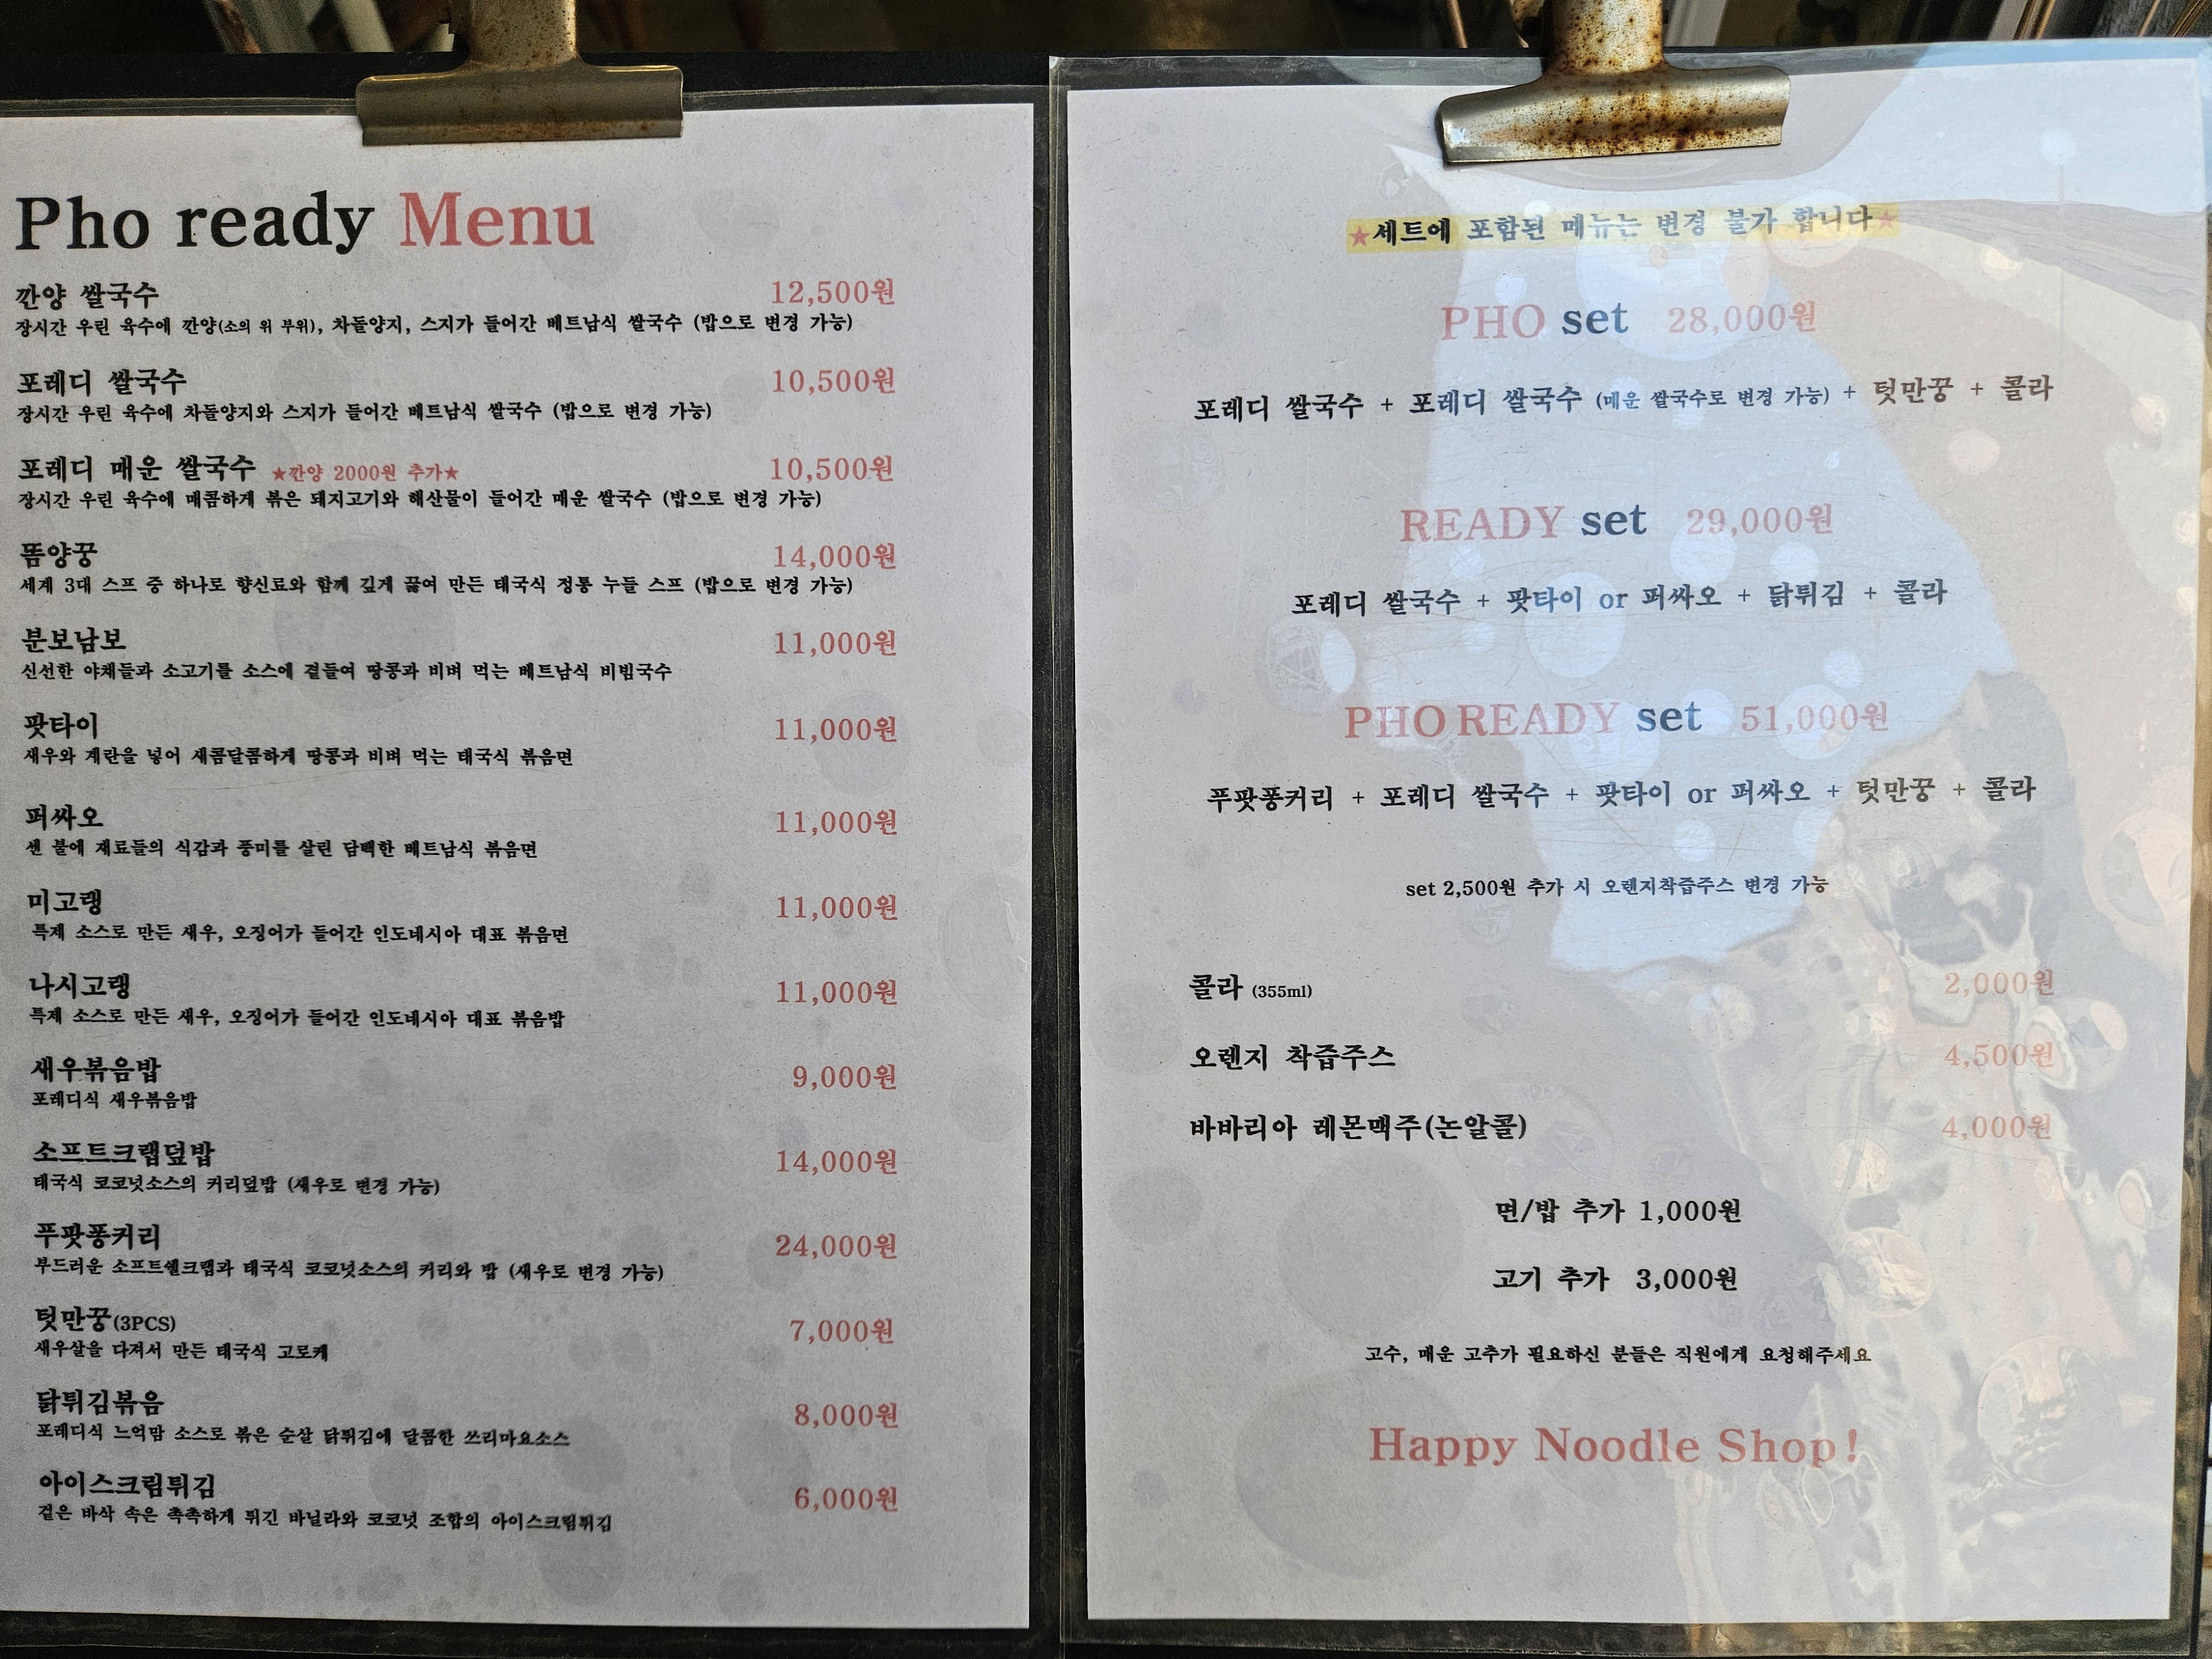 Pho ready Menu
깐양 쌀국수 12,500원
장시간 우린 육수에 깐양(소의 위 부위), 차돌양지, 스지가 들어간 베트남식 쌀국수 (밥으로 변경 가능)
포레디 쌀국수 10,500원
장시간 우린 육수에 차돌양지와 스지가 들어간 베트남식 쌀국수 (밥으로 변경 가능)
포레디 매운 쌀국수 ★깐양 2000원 추가★ 10,500원
장시간 우린 육수에 매콤하게 볶은 돼지고기와 해산물이 들어간 매운 쌀국수 (밥으로 변경 가능)
똠양꿍 14,000원
세계 3대 스프 중 하나로 향신료와 함께 깊게 끓여 만든 태국식 정통 누들 스프 (밥으로 변경 가능)
분보남보 11,000원
신선한 야채들과 소고기를 소스에 곁들여 땅콩과 비벼 먹는 베트남식 비빔국수
팟타이 11,000원
새우와 계란을 넣어 새콤달콤하게 땅콩과 비벼 먹는 태국식 볶음면
퍼싸오 11,000원
센 불에 재료들의 식감과 풍미를 살린 담백한 베트남식 볶음면
미고랭 11,000원
특제 소스로 만든 새우, 오징어가 들어간 인도네시아 대표 볶음면
나시고랭 11,000원
특제 소스로 만든 새우, 오징어가 들어간 인도네시아 대표 볶음밥
새우볶음밥 9,000원
포레디식 새우볶음밥
소프트크랩덮밥 14,000원
태국식 코코넛소스의 커리덮밥 (새우로 변경 가능)
푸팟퐁커리 24,000원
부드러운 소프트쉘크랩과 태국식 코코넛소스의 커리와 밥 (새우로 변경 가능)
텃만꿍(3PCS) 7,000원
새우살을 다져서 만든 태국식 고로케
닭튀김볶음 8,000원
포레디식 느억맘 소스로 볶은 순살 닭튀김에 달콤한 쓰리마요소스
아이스크림튀김 6,000원
겉은 바삭 속은 촉촉하게 튀긴 바닐라와 코코넛 조합의 아이스크림튀김
★세트에 포함된 메뉴는 변경 불가 합니다★
PHO set 28,000원
포레디 쌀국수 + 포레디 쌀국수 (매운 쌀국수로 변경 가능) + 텃만꿍 + 콜라
READY set 29,000원
포레디 쌀국수 + 팟타이 or 퍼싸오 + 닭튀김 + 콜라
PHO READY set 51,000원
푸팟퐁커리 + 포레디 쌀국수 + 팟타이 or 퍼싸오 + 텃만꿍 + 콜라
set 2,500원 추가 시 오렌지착즙주스 변경 가능
콜라 (355ml) 2,000원
오렌지 착즙주스 4,500원
바바리아 레몬맥주(논알콜) 4,000원
면/밥 추가 1,000원
고기 추가 3,000원
고수, 매운 고추가 필요하신 분들은 직원에게 요청해주세요
Happy Noodle Shop!